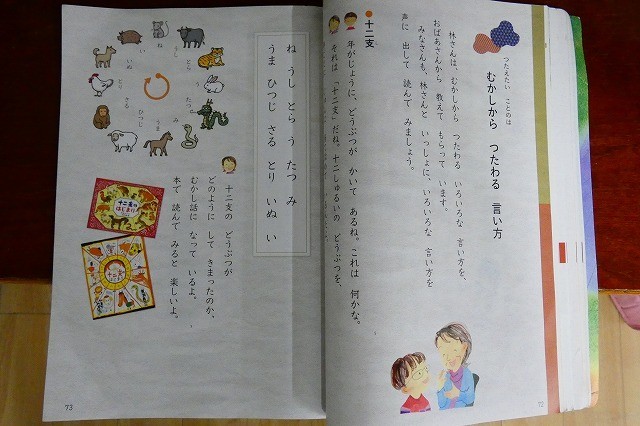 つたえたい ことのは
むかしから つたわる 言い方
林さんは、むかしから つたわる いろいろな 言い方を、
おばあさんから 教えて もらって います。
みなさんも、林さんと いっしょに、いろいろな 言い方を
声に 出して 読んで みましょう。
十二支
年がじょうに、どうぶつが かいて あるね。これは 何かな。
それは 「十二支」だね。十二しゅるいの どうぶつを、
72
ね うし とら う たつ み
うま ひつじ さる とり いぬ い
ね
うし
とら
う
たつ
み
うま
ひつじ
さる
とり
いぬ
い
十二支の どうぶつが
どのように して きまったのか、
むかし話に なって いるよ。
本で 読んで みると 楽しいよ。
十二支の
はじまり
73